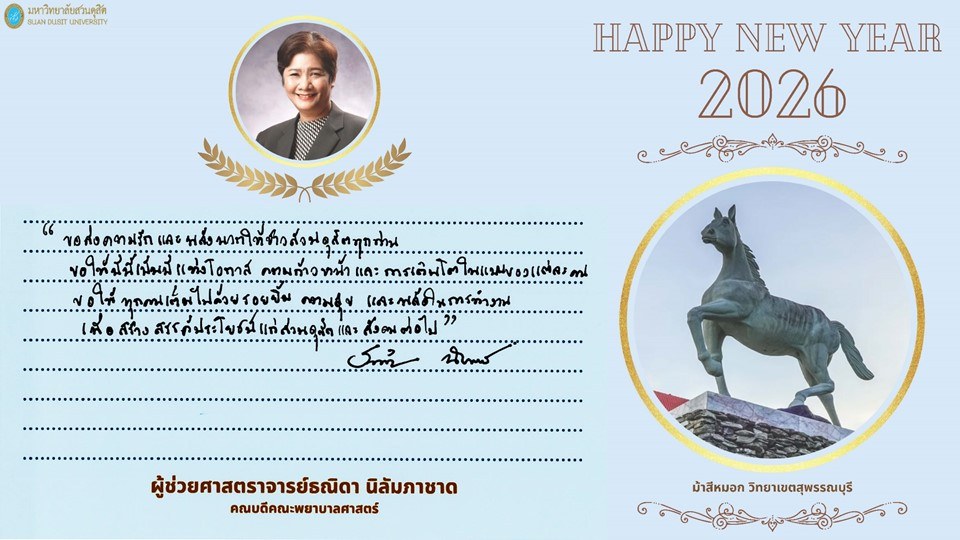 มหาวิทยาลัยสวนดุสิต
SUAN DUSIT UNIVERSITY
HAPPY NEW YEAR
2026
“ ขอส่งความรัก และ พลังบวกให้ชาวสวนดุสิตทุกท่าน
ขอให้ปีนี้เป็นปี แห่งโอกาส ความก้าวหน้า และ การเติบโตในแบบของแต่ละคน
ขอให้ ทุกคนเต็มไปด้วยรอยยิ้ม ความสุข และพลังในการทำงาน
เพื่อ สร้าง สรรค์ประโยชน์แก่สวนดุสิต และ สังคมต่อไป ”
ผู้ช่วยศาสตราจารย์ธณิดา นิลัมภาชาต
คณบดีคณะพยาบาลศาสตร์
ม้าสีหมอก วิทยาเขตสุพรรณบุรี